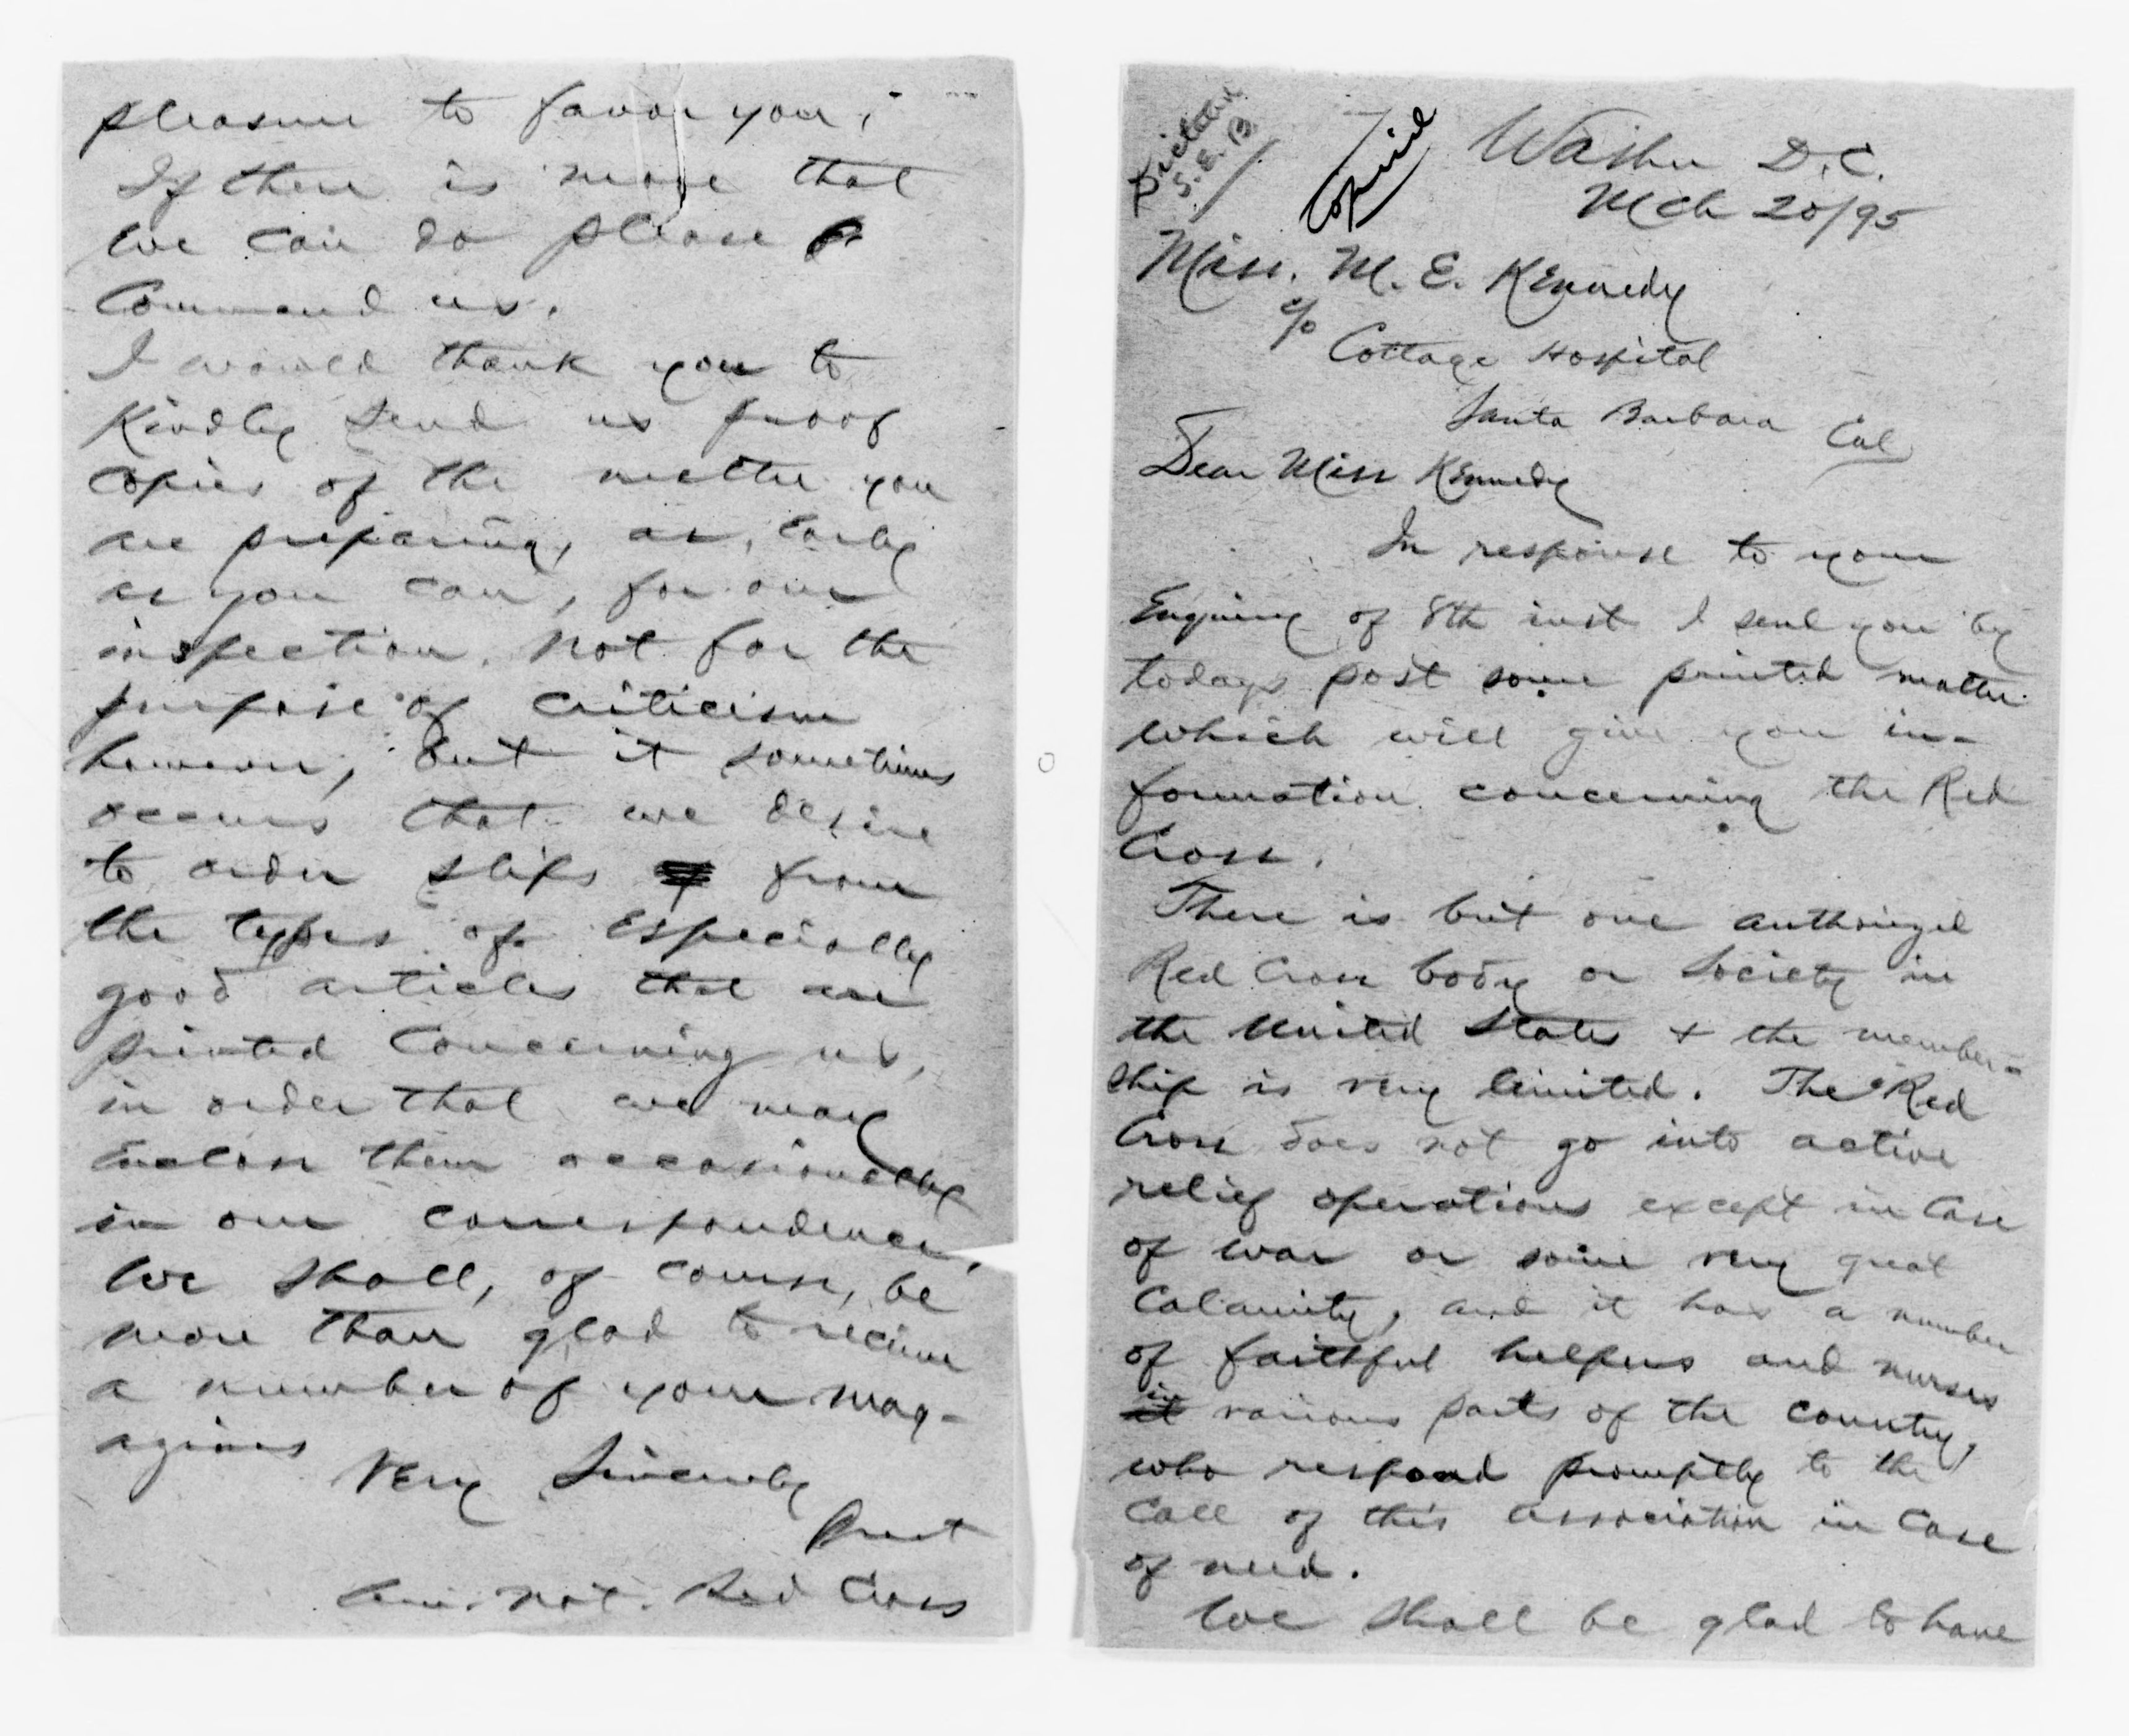 pleasure to favor you;
If there is more that
we can do please
Command us.
I would thank you to
Kindly send us proof
copies of the matter you
are preparing, as, Early
as you can, for our
inspection, not for the
purpose of criticism
however, but it sometimes
occurs that we desire
to order slips from
the types of Especially
good articles that are
printed concerning us,
in order that we may
Enclose them occasionally
in our correspondence,
We shall, of course, be
more than glad to receive
a number of your mag-
azines
Very Sincerely
Prest
Am. Nat. Red Cross
Dictated
S. E. B.
Copied
Washn D.C.
Mch 20/95
Miss. M. E. Kennedy
c/o
Cottage Hospital
Santa Barbara Cal
Dear Miss Kennedy
In response to your
Enquiry of 8th inst I send you by
todays post some printed matter
which will give you in-
formation concerning the Red
Cross.
There is but one authorized
Red Cross body or Society in
the United States + the member-
ship is very limited. The Red
Cross does not go into active
relief operations except in Case
of war or some very great
Calamity, and it has a number
of faithful helpers and nurses
in various parts of the country,
who respond promptly to the
call of this association in Case
of need.
We shall be glad to have